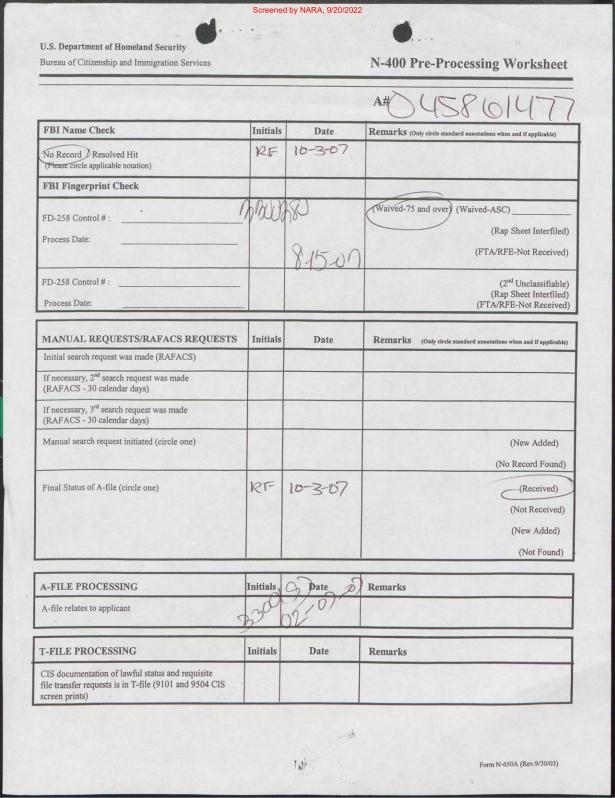 Screened by NARA, 9/20/2022
U.S. Department of Homeland Security
Bureau of Citizenship and Immigration Services
N-400 Pre-Processing Worksheet
A# 045861477
FBI Name Check Initials Date Remarks (Only circle standard annotations when and if applicable)
No Record / Resolved Hit RF 10-3-07
(Please circle applicable notation)
FBI Fingerprint Check
FD-258 Control # : (Waived-75 and over) (Waived-ASC)
(Rap Sheet Interfiled)
Process Date: 8-15-07 (FTA/RFE-Not Received)
FD-258 Control # : (2nd Unclassifiable)
(Rap Sheet Interfiled)
Process Date: (FTA/RFE-Not Received)
MANUAL REQUESTS/RAFACS REQUESTS Initials Date Remarks (Only circle standard annotations when and if applicable)
Initial search request was made (RAFACS)
If necessary, 2nd search request was made
(RAFACS - 30 calendar days)
If necessary, 3rd search request was made
(RAFACS - 30 calendar days)
Manual search request initiated (circle one) (New Added)
(No Record Found)
Final Status of A-file (circle one) RF 10-3-07 (Received)
(Not Received)
(New Added)
(Not Found)
A-FILE PROCESSING Initials Date Remarks
A-file relates to applicant
T-FILE PROCESSING Initials Date Remarks
CIS documentation of lawful status and requisite
file transfer requests is in T-file (9101 and 9504 CIS
screen prints)
Form N-650A (Rev.9/30/03)